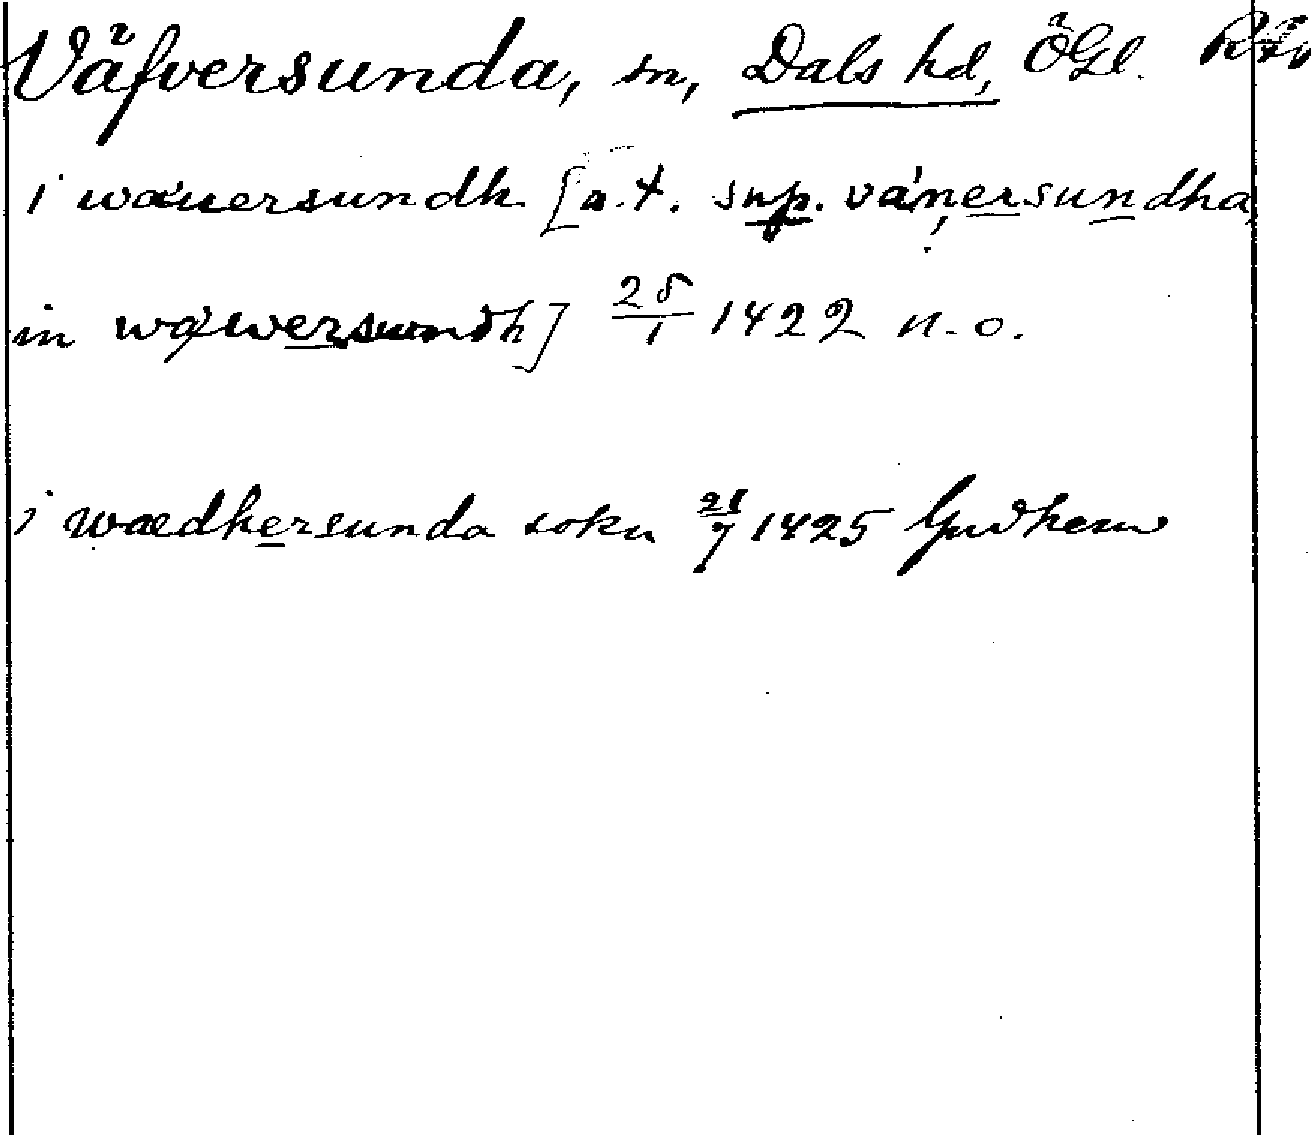 Väfversunda, sn, Dals hd, ÖGl. RÄo
i wäuersundh [a.t. sup. väuersundha
in wäwersundh] 25/1 1422 n.o.
i wædhersunda sokn 21/7 1425 Gudhem